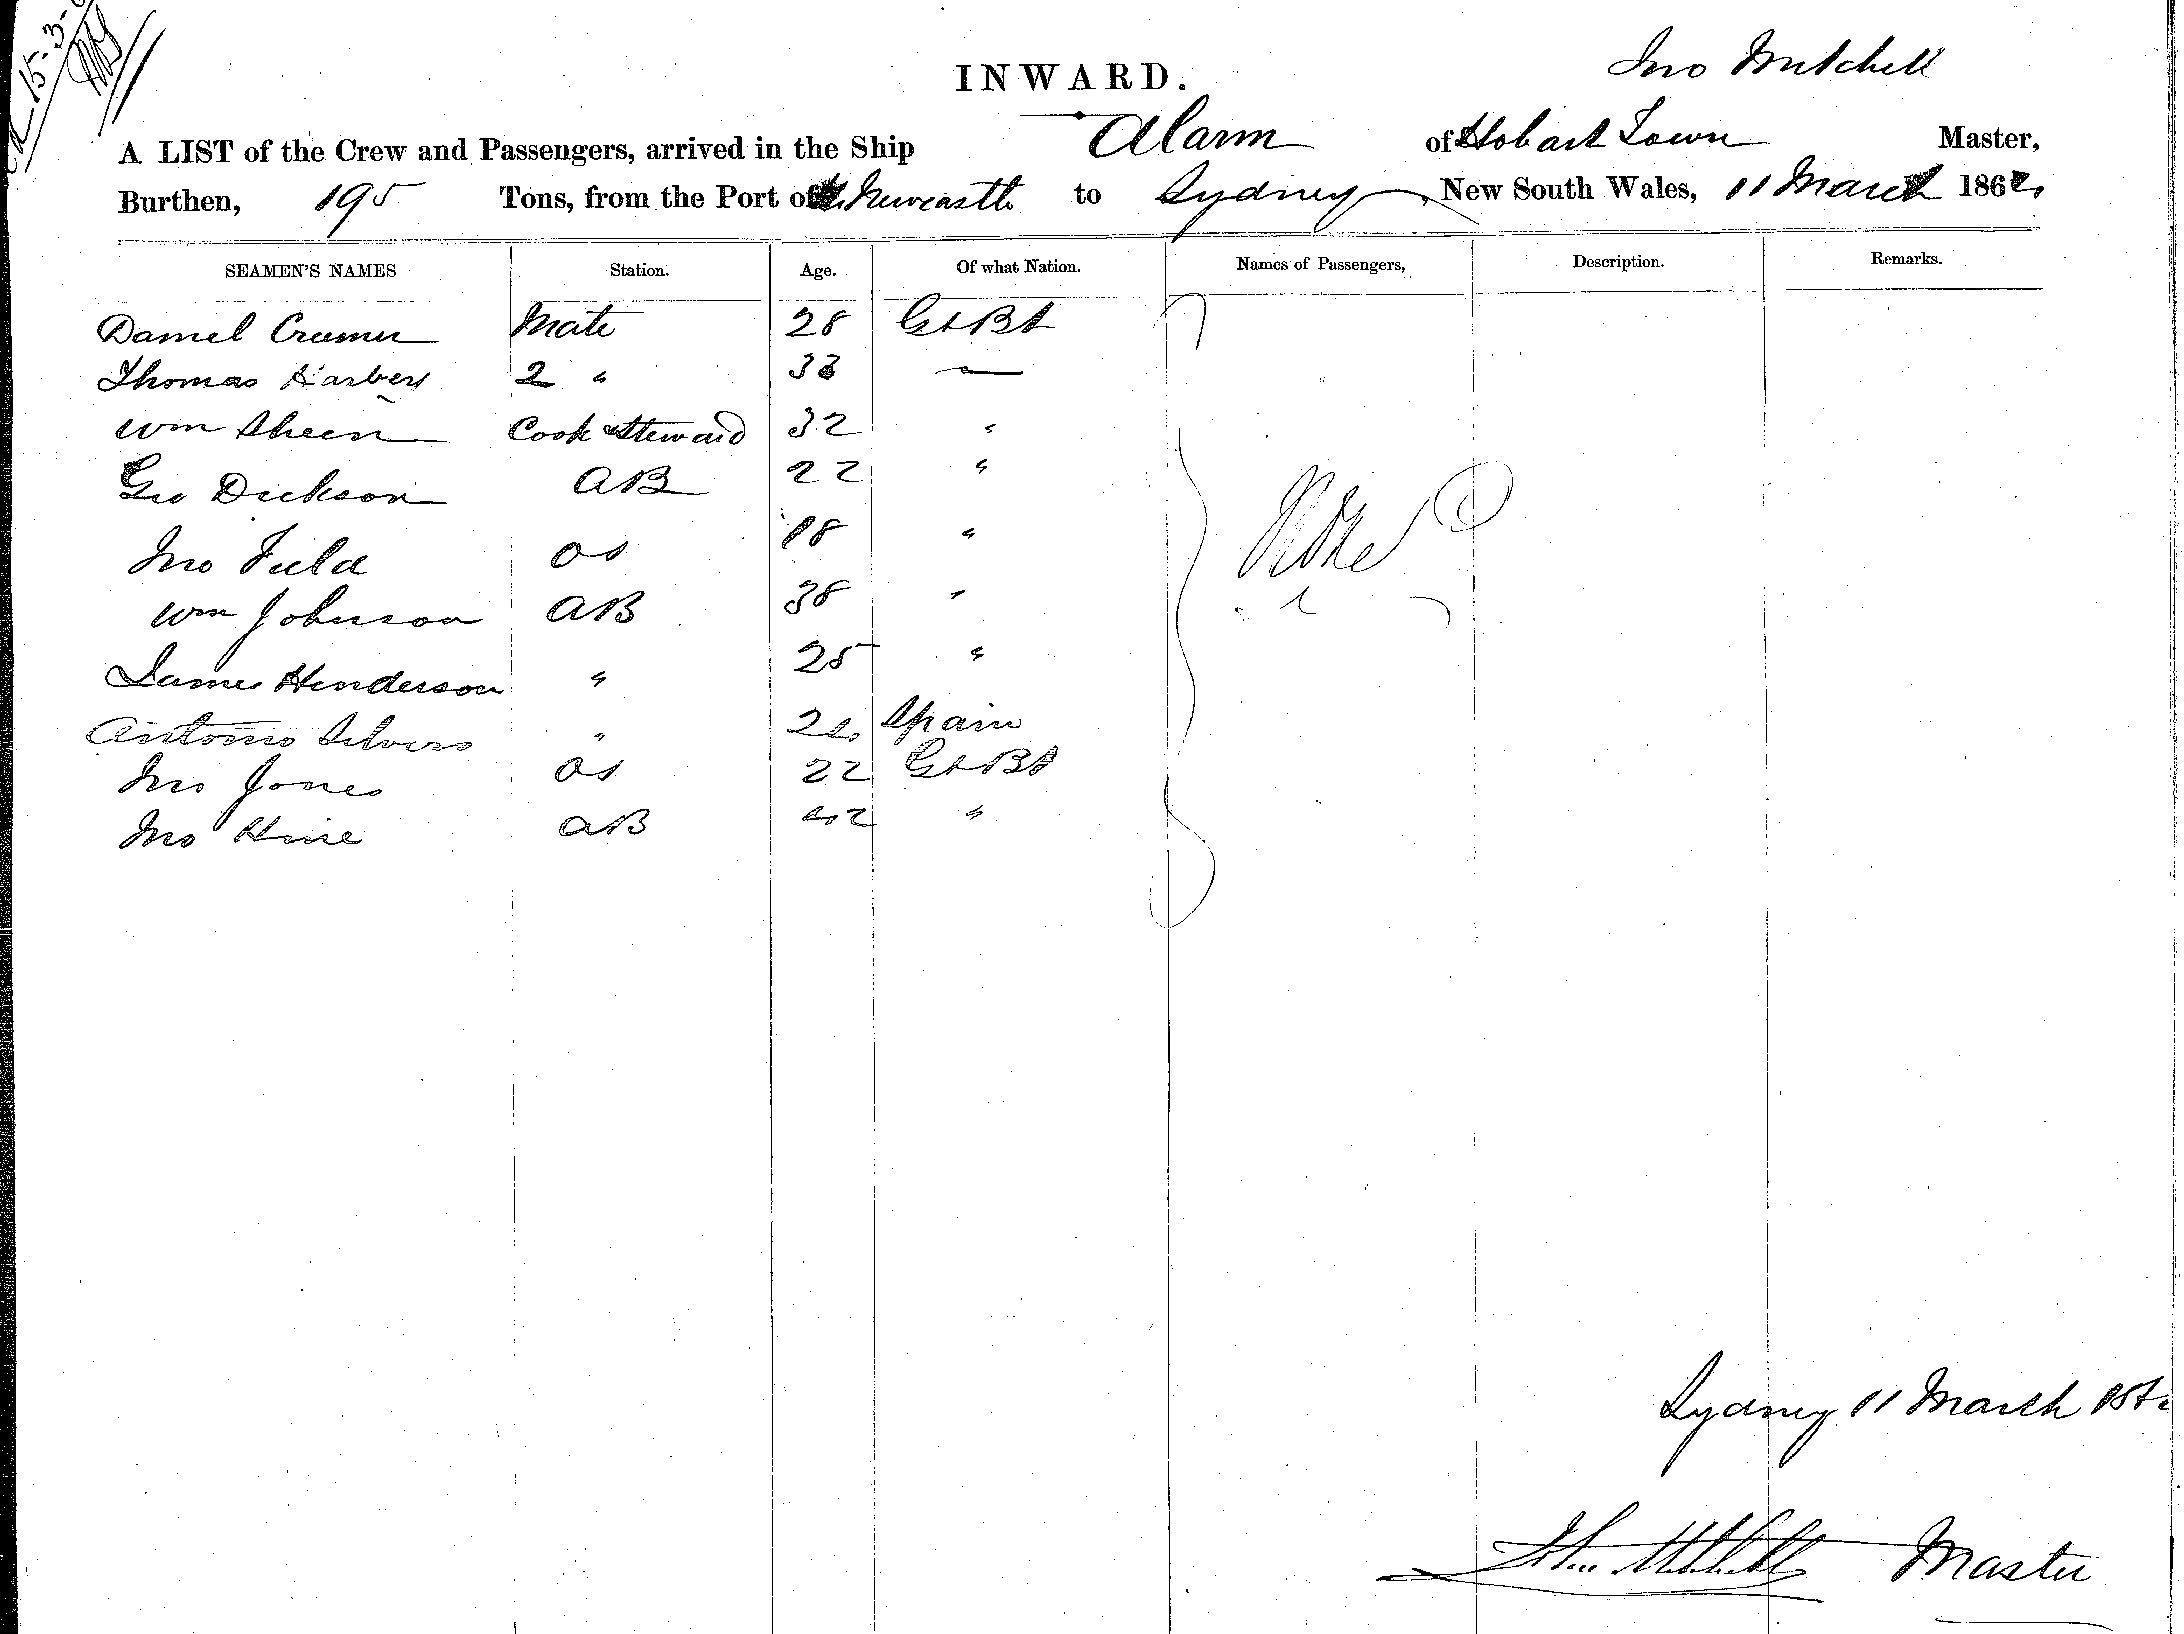 15-3-
INWARD.
Jno Mitchell
A LIST of the Crew and Passengers, arrived in the Ship Alarm of Hobart Town Master,
Burthen, 195 Tons, from the Port of Newcastle to Sydney, New South Wales, 11 March 1862
SEAMEN'S NAMES Station. Age. Of what Nation. Names of Passengers, Description. Remarks.
Daniel Mate 28 Gt Bt
Thomas 2 " 33 —
Wm Sheen Cook & Steward 32 "
Geo Dickson AB 22 "
Jno Field OS 18 "
None
Wm Johnson AB 38 "
James Henderson " 25 "
Antonio " Spain
Jno Jones OS 22 Gt Bt
Jno Hine AB "
Sydney 11 March
John Mitchell Master